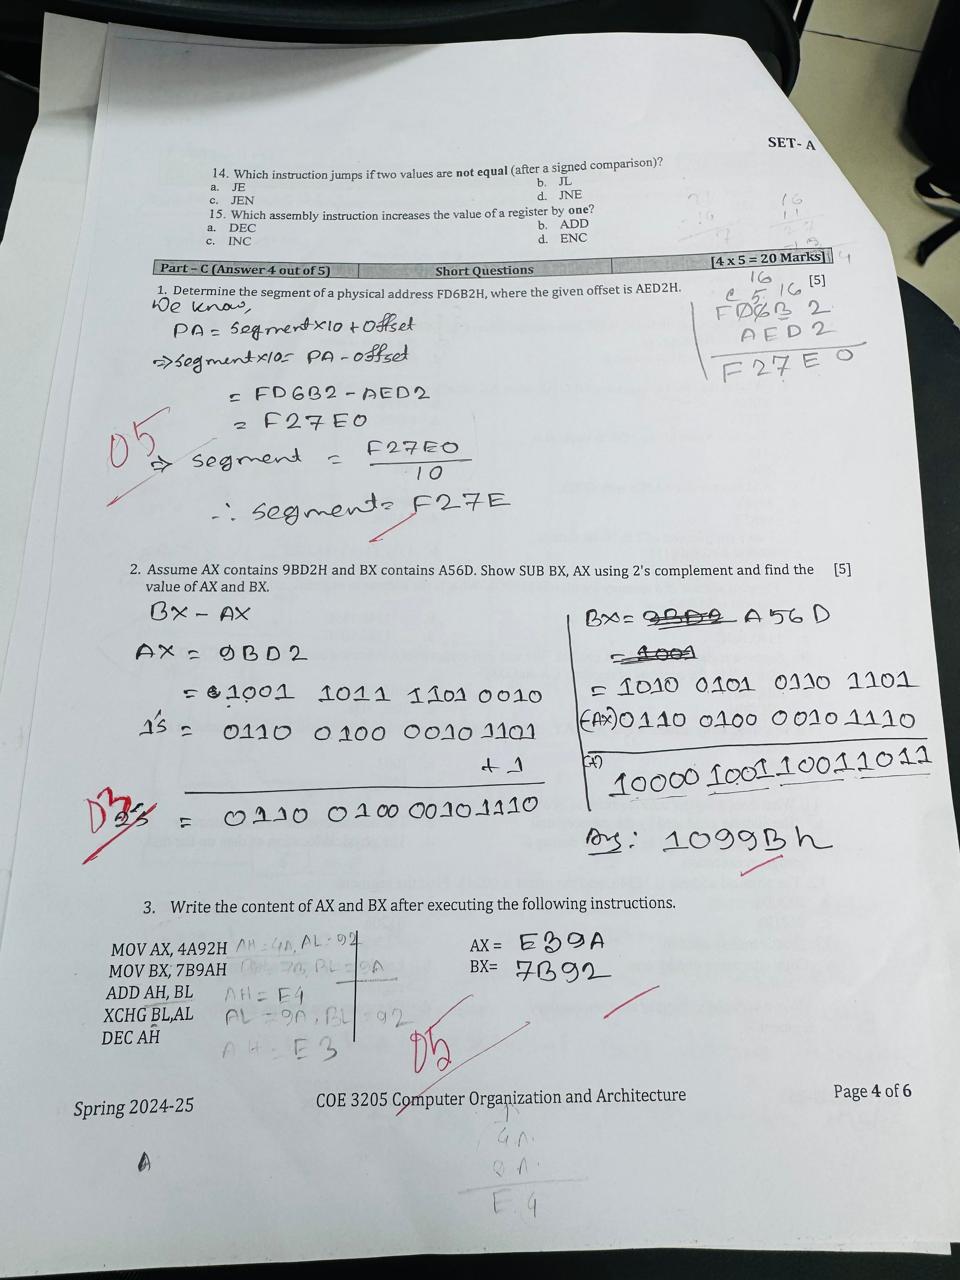 SET- A
14. Which instruction jumps if two values are not equal (after a signed comparison)?
a. JE b. JL
c. JEN d. JNE
15. Which assembly instruction increases the value of a register by one?
a. DEC b. ADD
c. INC d. ENC
16
11
Part – C (Answer 4 out of 5) Short Questions [4 x 5 = 20 Marks]
1. Determine the segment of a physical address FD6B2H, where the given offset is AED2H. [5]
We know,
PA = Segment×10 + Offset
⇒ segment×10 = PA - offset
= FD6B2 - AED2
= F27E0
⇒ segment = F27E0
10
∴ segment = F27E
05
16
C 5 16
FD6B 2
AED2
F27E0
2. Assume AX contains 9BD2H and BX contains A56D. Show SUB BX, AX using 2's complement and find the [5]
value of AX and BX.
BX - AX
AX = 9BD2
= 1001 1011 1101 0010
1's = 0110 0100 0010 1101
+ 1
2's = 0110 0100 0010 1110
03
BX = 9BD2 A56D
= 1001
= 1010 0101 0110 1101
(-AX) 0110 0100 0010 1110
(+)
10000 1001 10011011
Ans: 1099B h
3. Write the content of AX and BX after executing the following instructions.
MOV AX, 4A92H AH = 4A, AL = 92
MOV BX, 7B9AH BH = 7B, BL = 9A
ADD AH, BL AH = E4
XCHG BL,AL AL = 9A, BL = 92
DEC AH AH = E3
AX = E39A
BX= 7B92
05
Spring 2024-25 COE 3205 Computer Organization and Architecture Page 4 of 6
4A
9A
E4
A